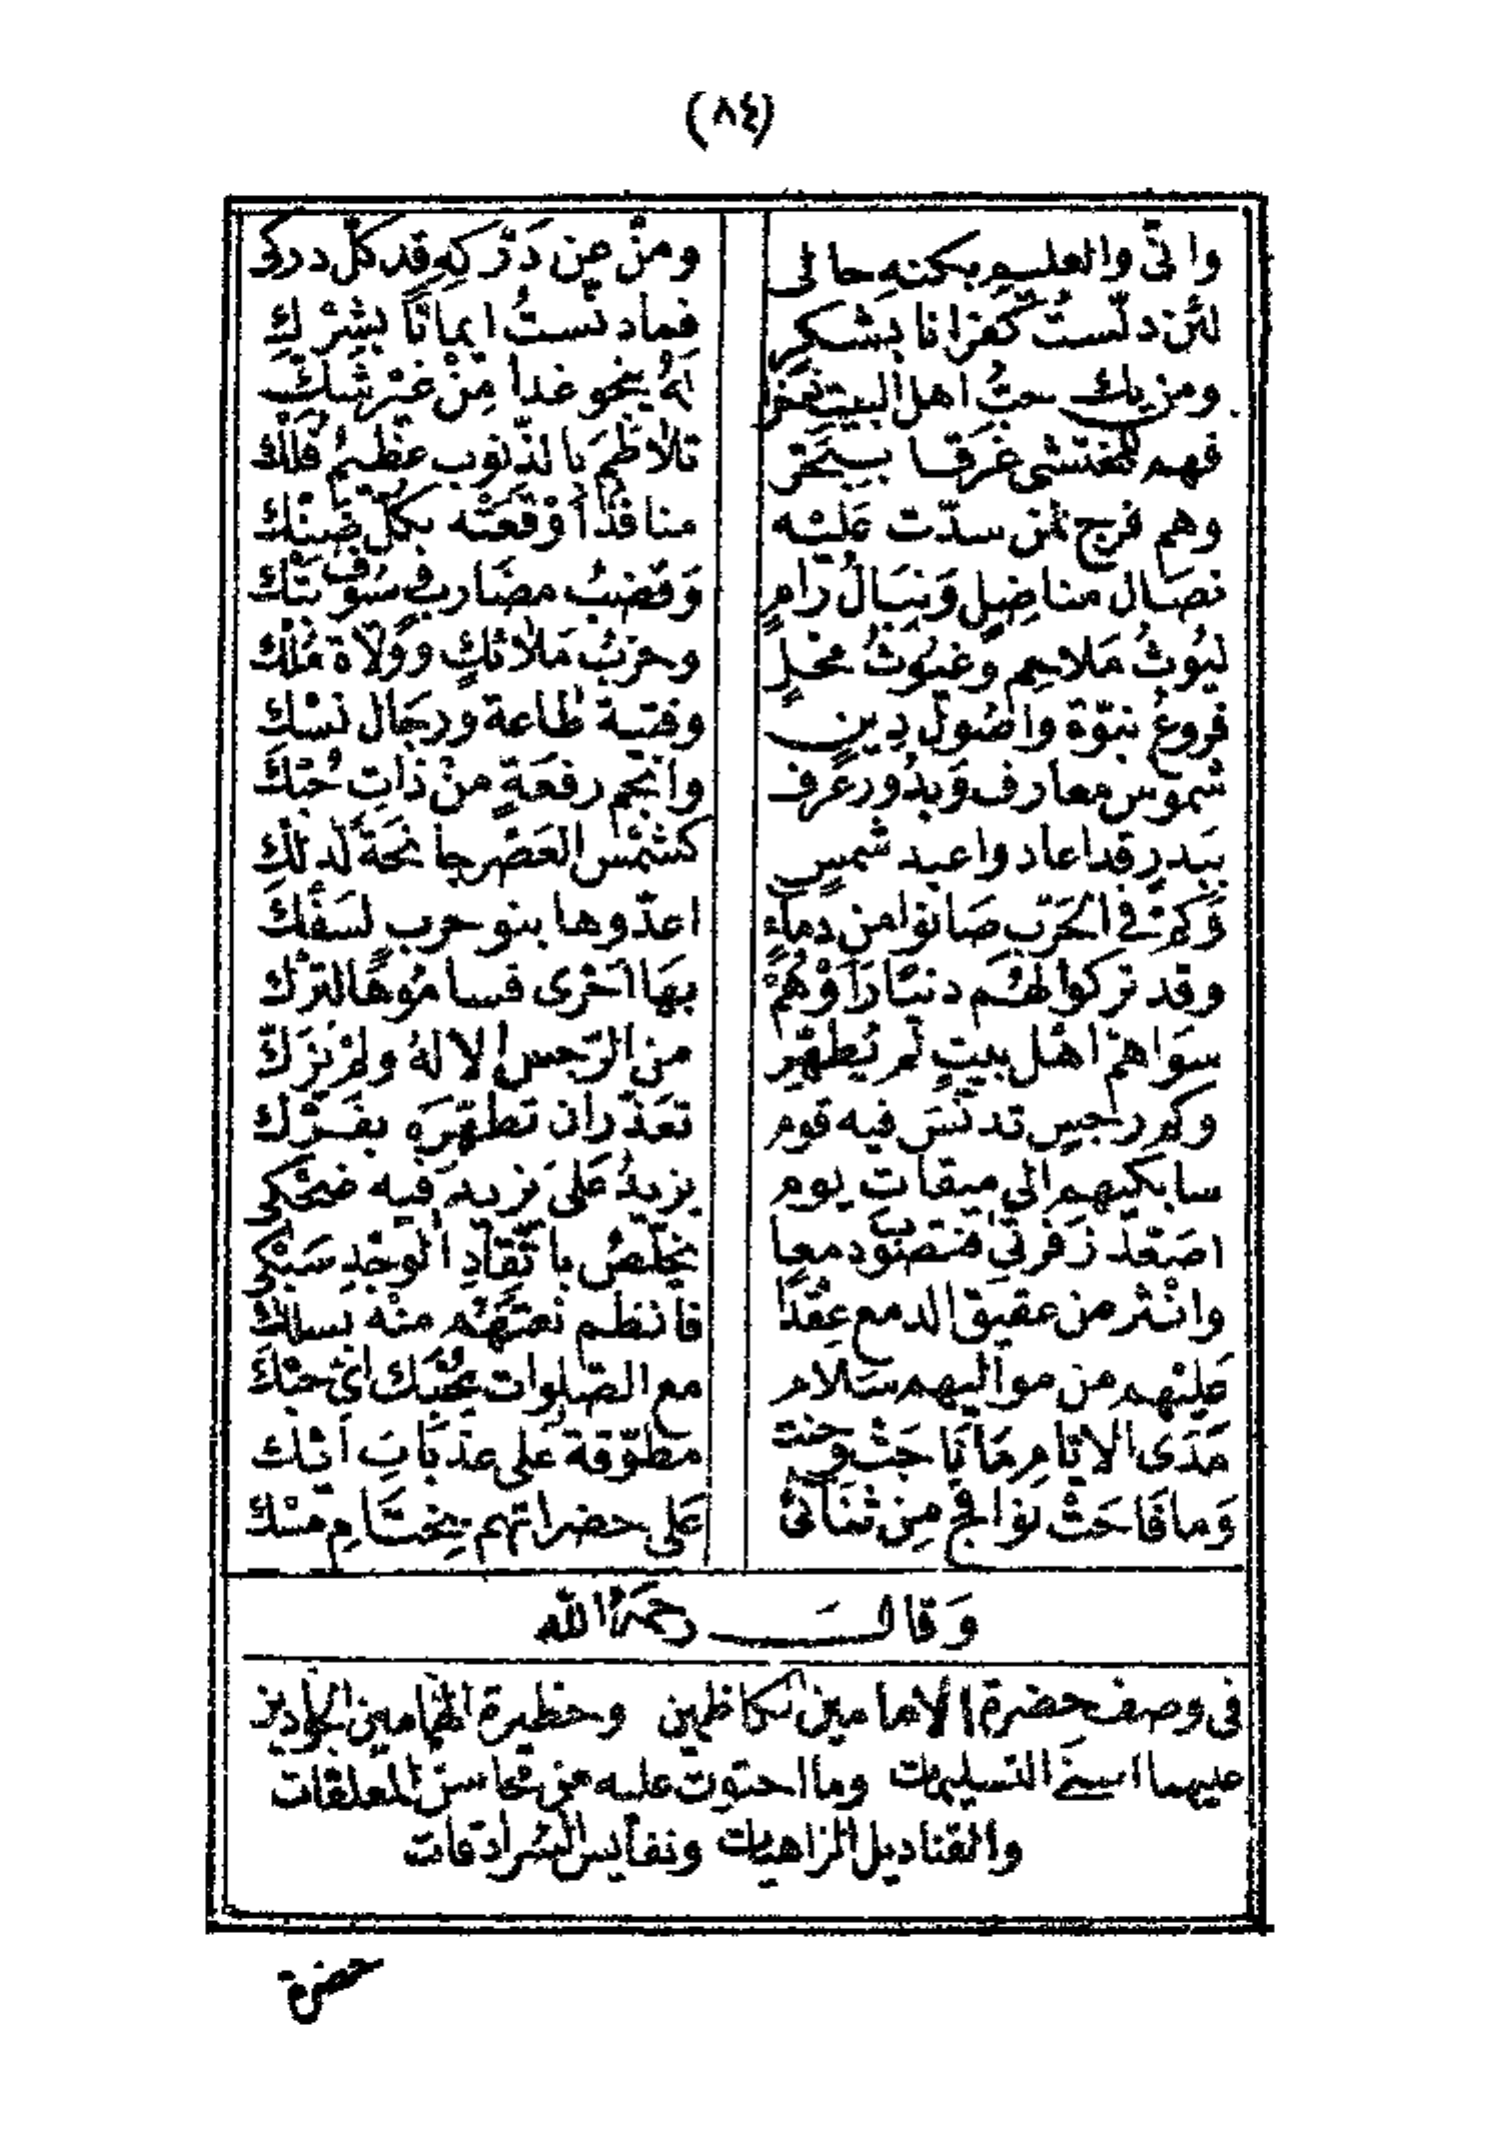 (٨٤)
وانّى والعليم بكنه حالى ومنْ عن دَرْكهِ قد كلّ دركى
لئن دنّستُ كفرانا بشكر فمادنّستُ ايمانًا بشرْكِ
ومن يك اهل البيت له ينجو غدا مِنْ غيْر شَكّ
فهم غَرَقا ببحر تلاطَمَ بالذّنوب عظيمُ فُلْك
وهم فرج لمن سدّت عَليْه منافذ أوْقعَتْه بكلّ ضَنْك
نصَال مناضِلٍ وَنبَالُ رَامٍ وَقضبُ مضَاربٍ سُوف بَتْك
ليُوثُ مَلاحِمٍ وغيُوثُ مَحْلٍ وحزبُ مَلائكٍ وولَاة مُلْك
فروعُ نبوّة واصُولُ دِينٍ وفتية طاعة ورجَال نسْك
شموس معارف وَبدُور عرف وانجم رفعَةٍ منْ ذَاتِ حُبْك
بيَدرٍ قد اعادوا عبد شمسٍ كشمْس العَصْر جانحَة لدلْك
وَكمْ فى الحَرْب صَانوا من دماءٍ اعدّوها بنو حرب لسَفْكَ
وقد تركوا لهُم دنيَا رَاَوْهُمْ بهَا اَحْرى فسامُوهَا لترْك
سوَاهمْ اهْل بيتٍ لم يُطهّر من الرّجس الالهُ ولمْ يُزَكّ
وكم رجسٍ تدنّسَ فيه قوم تعَذّر ان تطهّرَه بفَرْك
سابكيهم الى ميقات يوم يزيدُ عَلى يزيد فيه ضحْكى
اصَعّد زفرتى فتصَوّب دمعا يخلّصُ باتّقادِ الوجْدِ سَبْكى
وانْثر من عقيق الدمع عِقْدًا فانظم منْه بسلك
عَليْهم من مواليهم سَلام مع الصّلوات
مَدَى الايّام مَا نَاحَتْ وحنت مطوّقة عَلى عذبَاتِ اَيْك
وَما فَاحَتْ نوافج مِن ثنَائى عَلى حضراتهم بخِتَامِ مسْك
وَقالَ رحمَهُ الله
فى وصف حضرة الامامين الكاظمين وحظيرة الهمامين الجوادين
عليهما اسنى التسليمات وما احتوت عليه من محاسن المعلقات
والقناديل الزاهيات ونفايس السرادقات
حضرة